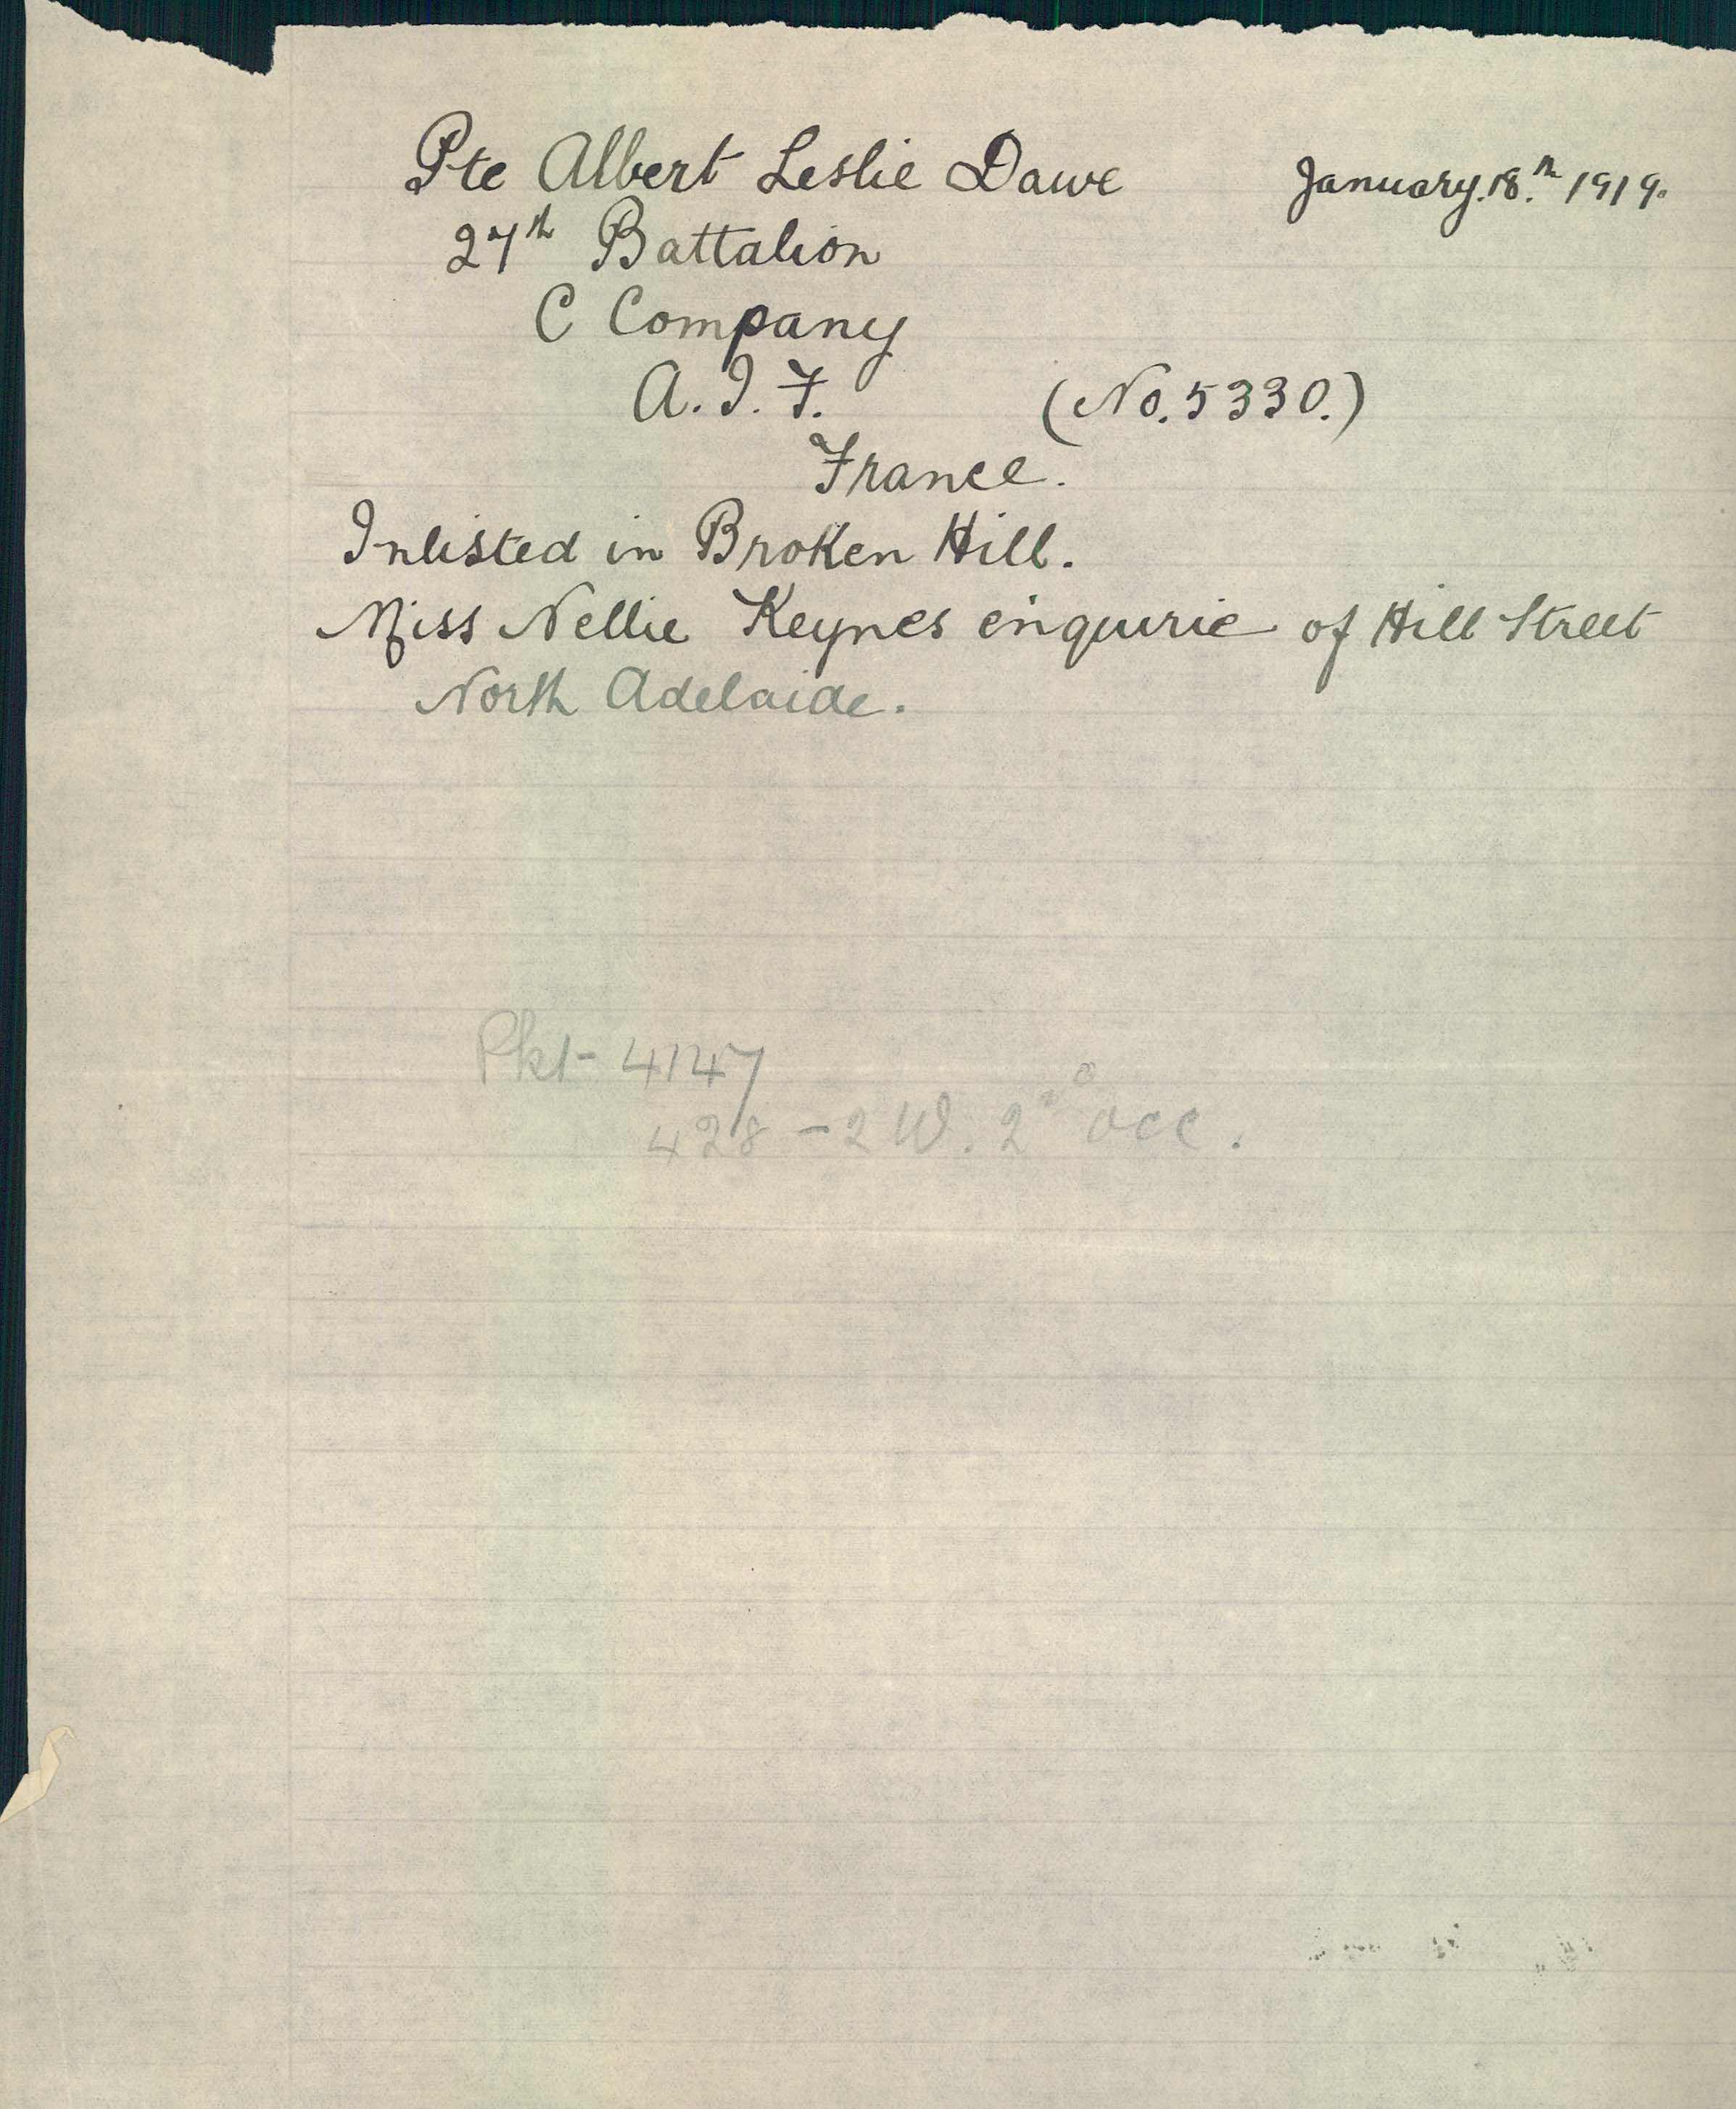 Pte Albert Leslie Dawe January.18.th 1919.
27th Battalion
C Company
A.I.F. (No.5330.)
France.
Inlisted in Broken Hill.
Miss Nellie Keynes enquirie of Hill Street
North Adelaide.
Pkt- 4147
428 - 2 W. 2nd occ.